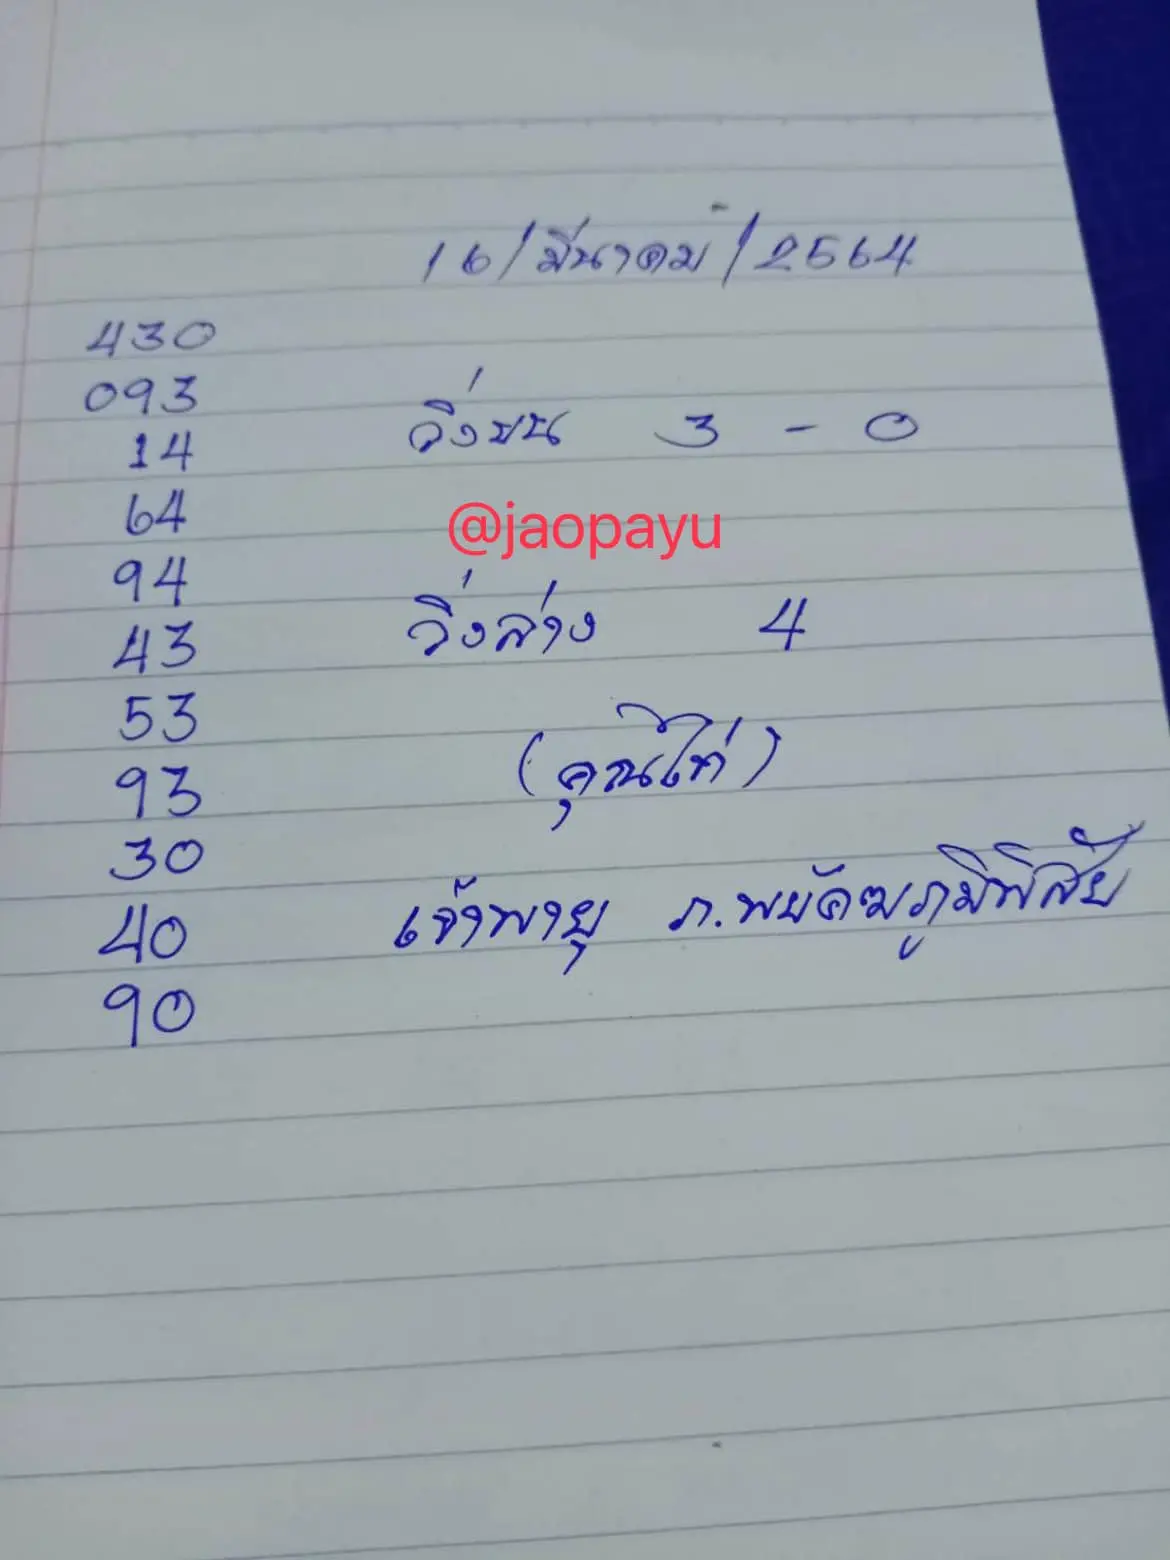 16/มีนาคม/2564
430
093
14
64
94
43
53
93
30
40
90
วิ่งบน 3 - 0
@jaopayu
วิ่งล่าง 4
(คุณไก่)
เจ้าพายุ ภ.พยัคฆภูมิพิสัย